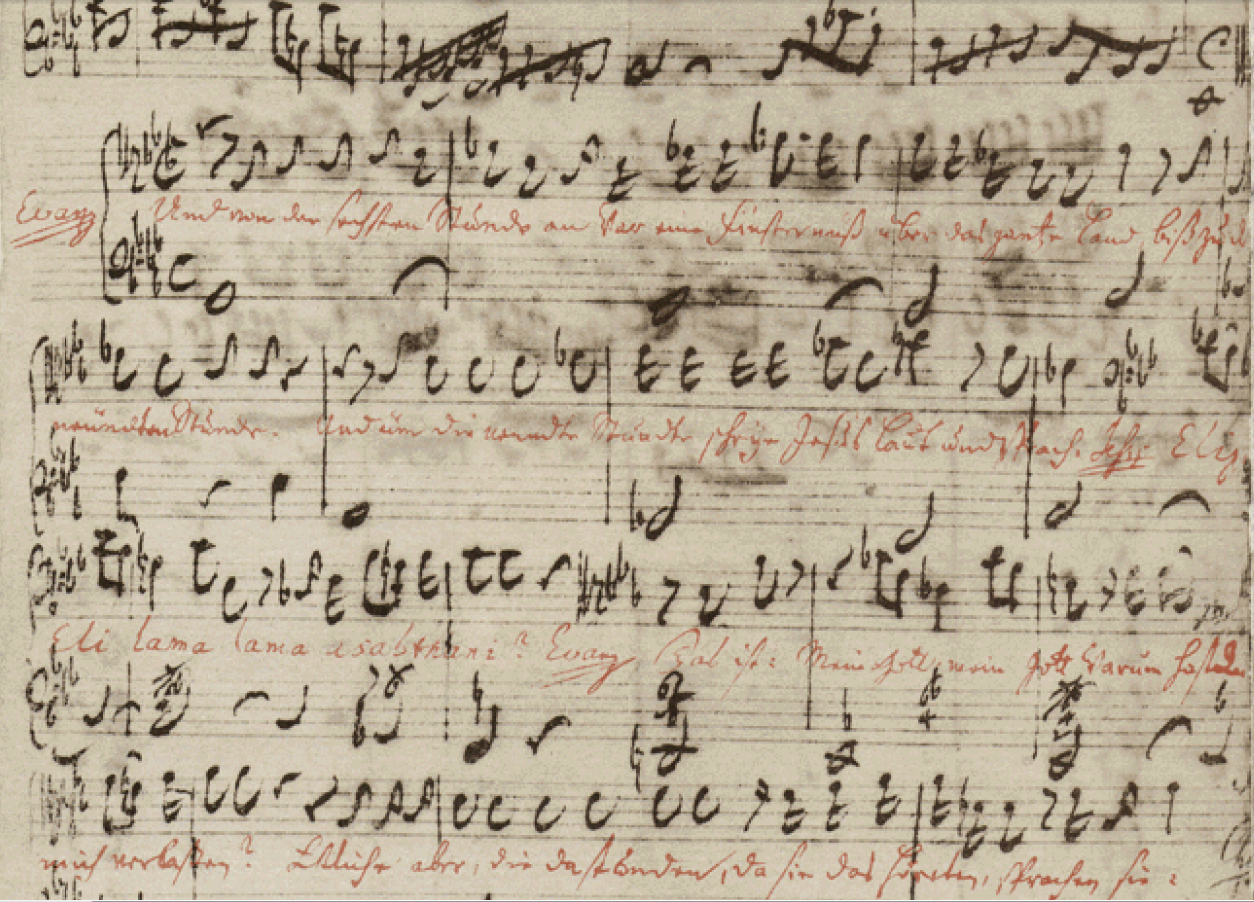 Evang Und von der sechsten Stunde an war eine Finsterniß über das gantze Land, biß zu d
neundten Stunde. Und üm die neundte Stunde schrye Jesus laut und sprach. Jesus Eli,
Eli lama lama asabthani? Evang Das ist: Mein Gott mein Gott warum hastu
mich verlaßen? Etliche aber, die da stunden, da sie das höreten, sprachen sie: